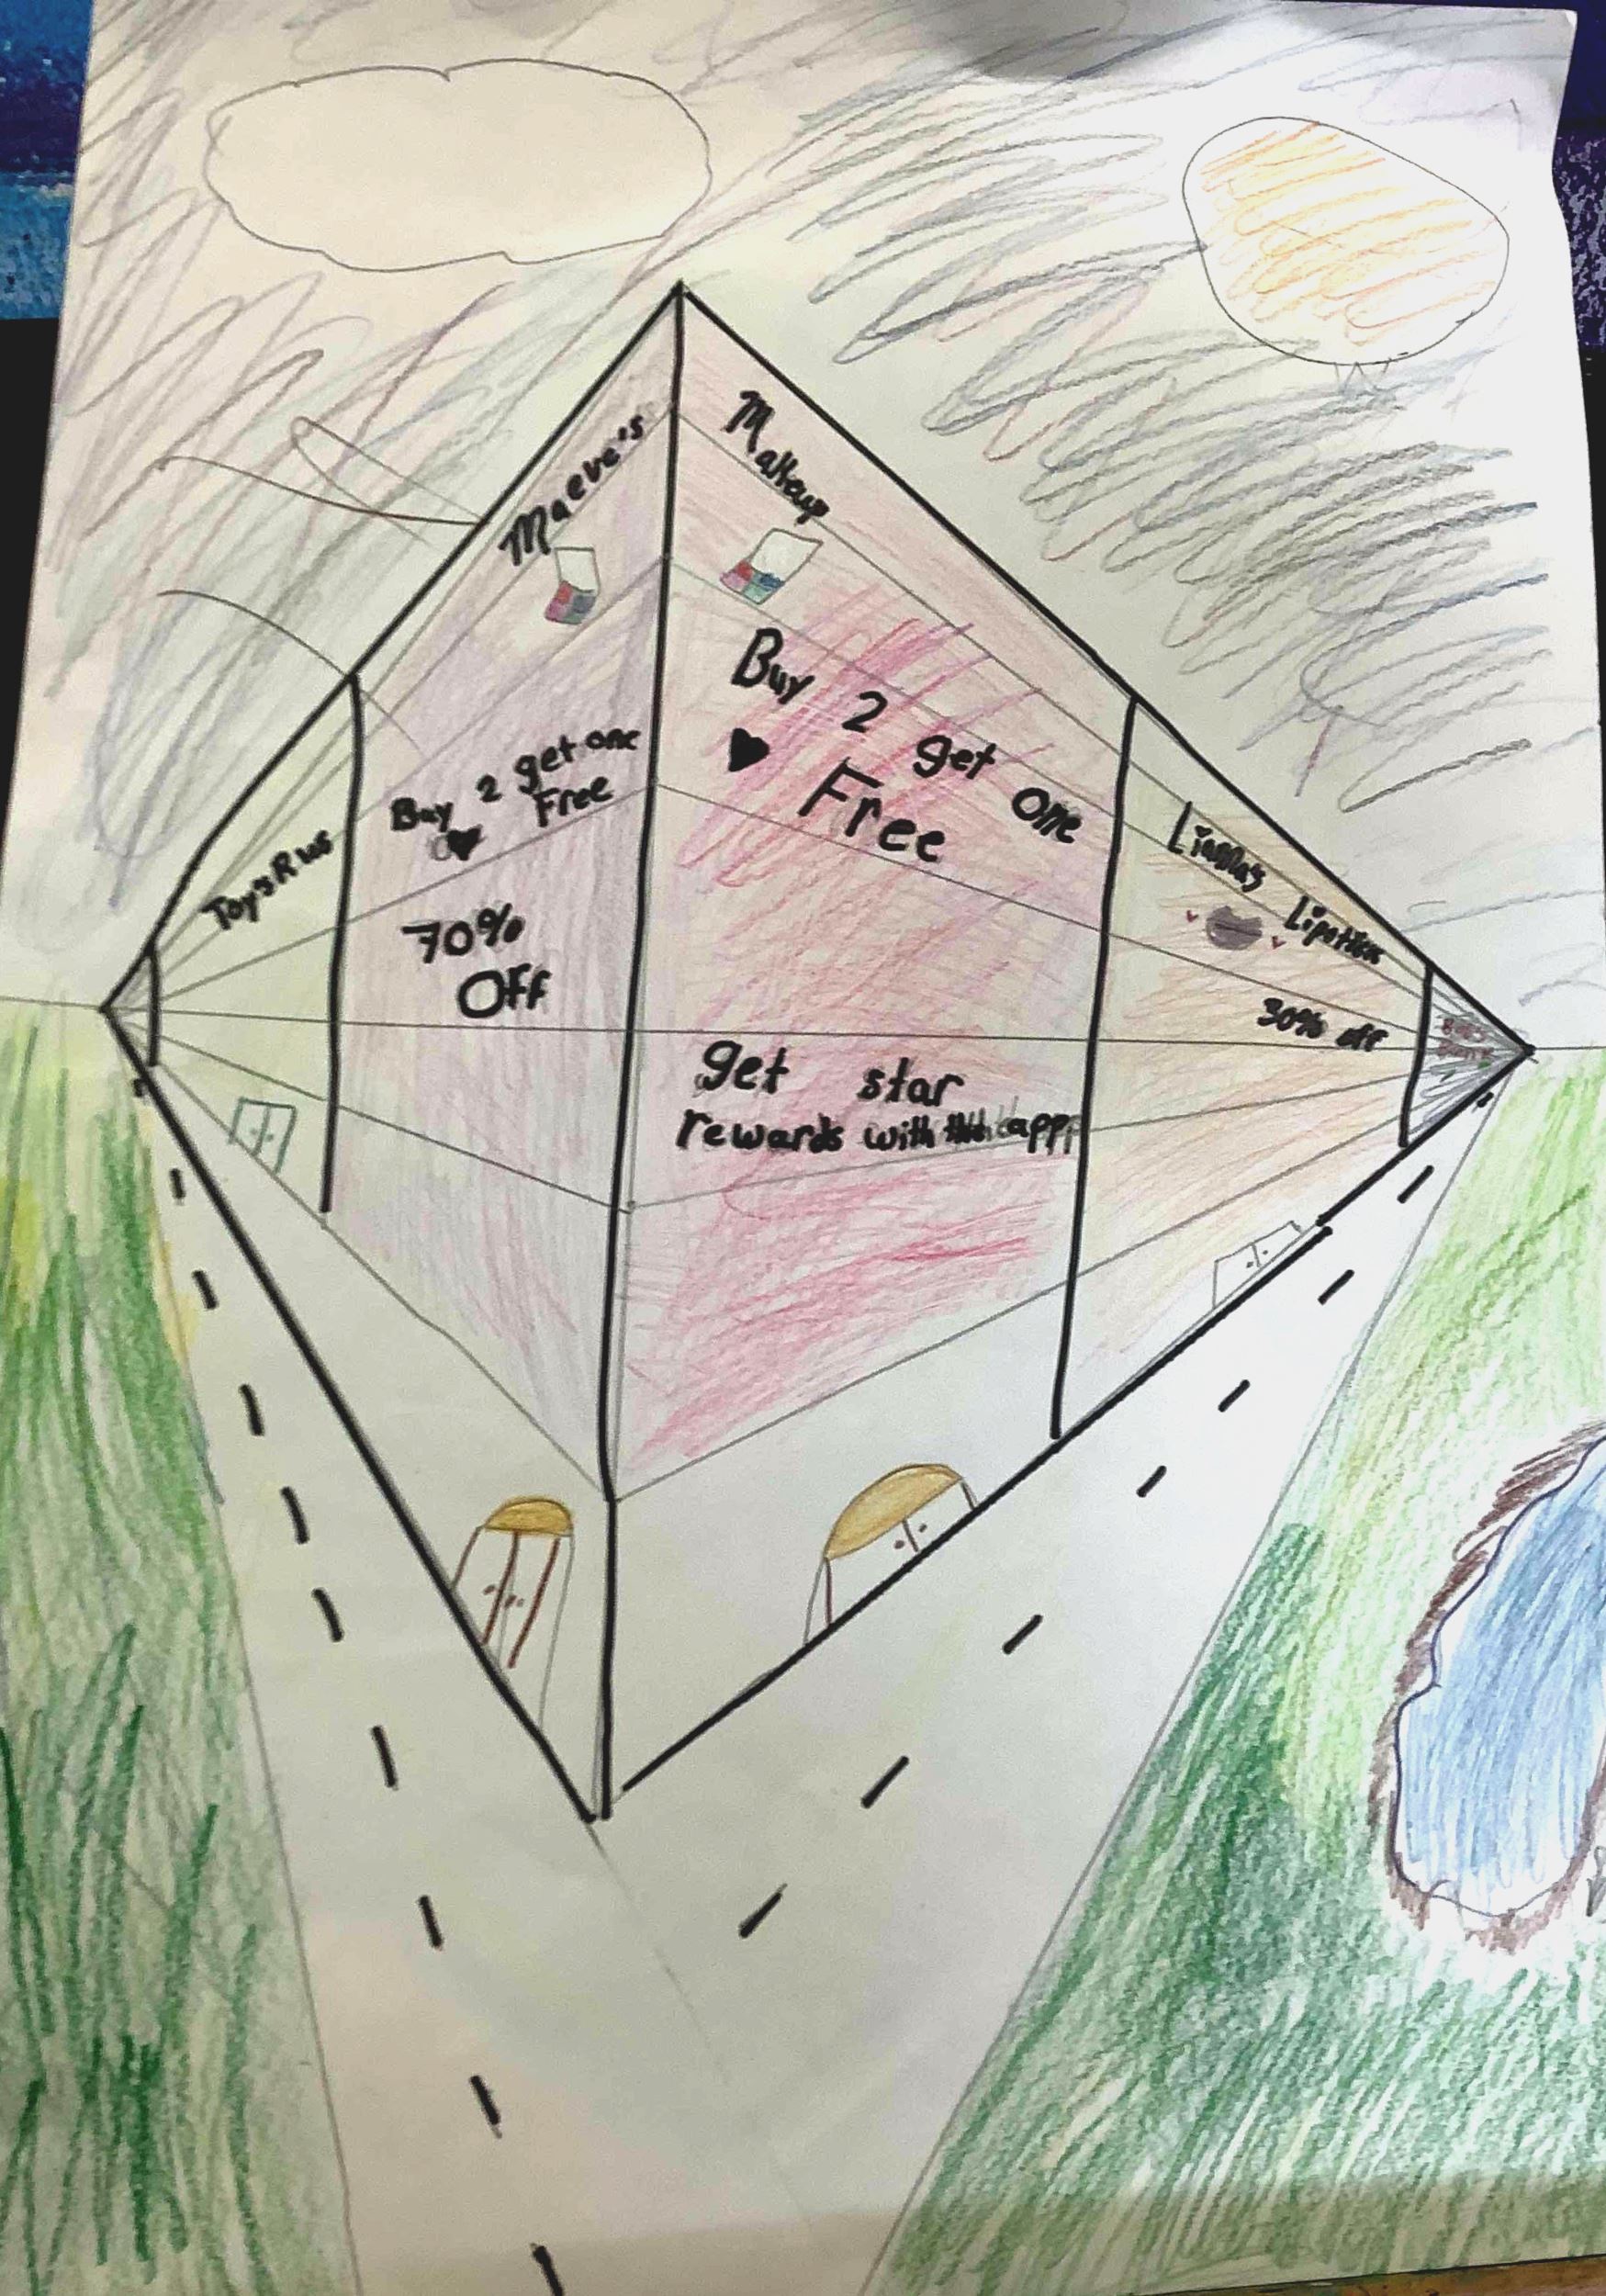 Maeve's
Makeup
Buy 2 get one
Free
Buy 2 get one
Free
Toys R us
70%
Off
Lipstick
30% off
get star
rewards with app